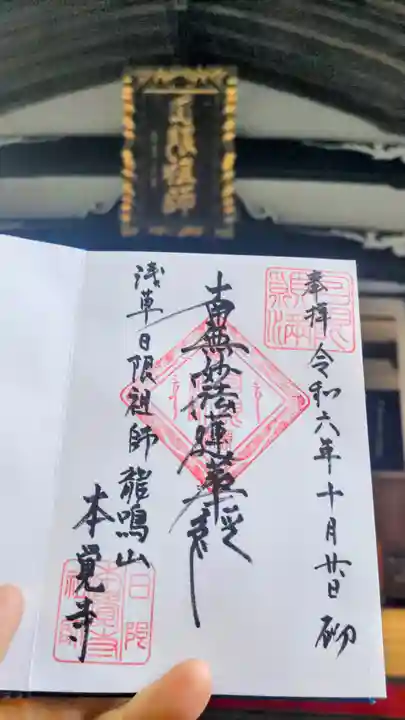 日限祖師
奉拝 令和六年十月廿日 砌
南無妙法蓮華経
浅草日限祖師 龍鳴山
本覚寺